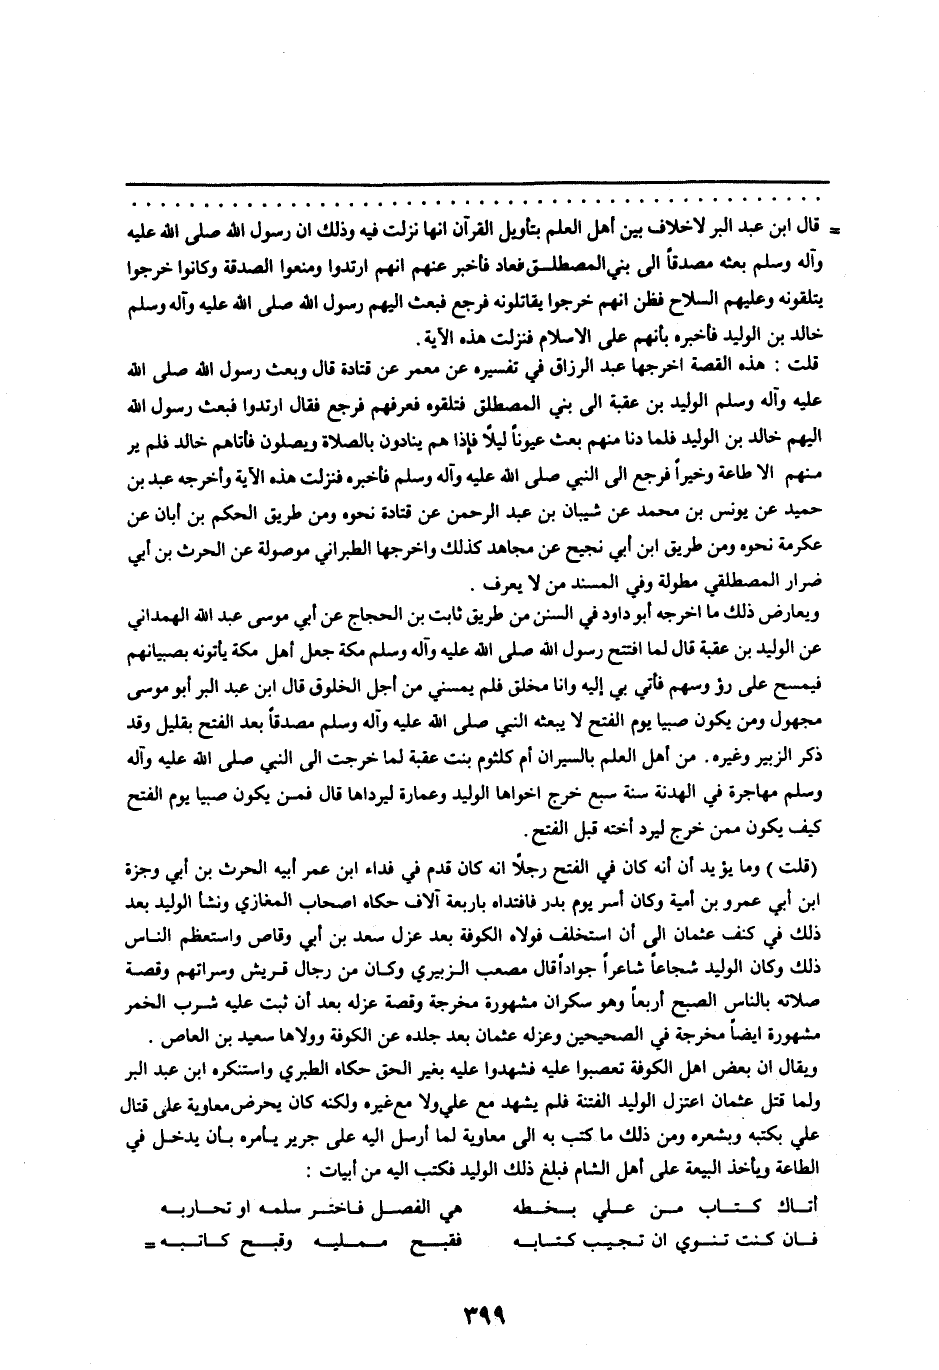 = قال ابن عبد البر لاخلاف بين أهل العلم بتأويل القرآن انها نزلت فيه وذلك ان رسول الله صلى الله عليه
وآله وسلم بعثه مصدقاً الى بني المصطلق فعاد فأخبر عنهم انهم ارتدوا ومنعوا الصدقة وكانوا خرجوا
يتلقونه وعليهم السلاح فظن انهم خرجوا يقاتلونه فرجع فبعث اليهم رسول الله صلى الله عليه وآله وسلم
خالد بن الوليد فأخبره بأنهم على الاسلام فنزلت هذه الآية .
قلت : هذه القصة اخرجها عبد الرزاق في تفسيره عن معمر عن قتادة قال وبعث رسول الله صلى الله
عليه وآله وسلم الوليد بن عقبة الى بني المصطلق فتلقوه فعرفهم فرجع فقال ارتدوا فبعث رسول الله
اليهم خالد بن الوليد فلما دنا منهم بعث عيوناً ليلًا فإذا هم ينادون بالصلاة ويصلون فأتاهم خالد فلم ير
منهم الا طاعة وخيراً فرجع الى النبي صلى الله عليه وآله وسلم فأخبره فنزلت هذه الآية وأخرجه عبد بن
حميد عن يونس بن محمد عن شيبان بن عبد الرحمن عن قتادة نحوه ومن طريق الحكم بن أبان عن
عكرمة نحوه ومن طريق ابن أبي نجيح عن مجاهد كذلك واخرجها الطبراني موصولة عن الحرث بن أبي
ضرار المصطلقي مطولة وفي المسند من لا يعرف .
ويعارض ذلك ما اخرجه أبو داود في السنن من طريق ثابت بن الحجاج عن أبي موسى عبد الله الهمداني
عن الوليد بن عقبة قال لما افتتح رسول الله صلى الله عليه وآله وسلم مكة جعل أهل مكة يأتونه بصبيانهم
فيمسح على رؤ وسهم فأتي بي إليه وانا مخلق فلم يمسني من أجل الخلوق قال ابن عبد البر أبو موسى
مجهول ومن يكون صبيا يوم الفتح لا يبعثه النبي صلى الله عليه وآله وسلم مصدقاً بعد الفتح بقليل وقد
ذكر الزبير وغيره . من أهل العلم بالسيران أم كلثوم بنت عقبة لما خرجت الى النبي صلى الله عليه وآله
وسلم مهاجرة في الهدنة سنة سبع خرج اخواها الوليد وعمارة ليرداها قال فمن يكون صبيا يوم الفتح
كيف يكون ممن خرج ليرد أخته قبل الفتح .
(قلت ) وما يؤ يد أن أنه كان في الفتح رجلًا انه كان قدم في فداء ابن عمر أبيه الحرث بن أبي وجزة
ابن أبي عمرو بن أمية وكان أسر يوم بدر فافتداه باربعة آلاف حكاه اصحاب المغازي ونشأ الوليد بعد
ذلك في كنف عثمان الى أن استخلف فولاه الكوفة بعد عزل سعد بن أبي وقاص واستعظم الناس
ذلك وكان الوليد شجاعاً شاعراً جواداً قال مصعب الزبيري وكان من رجال قريش وسراتهم وقصة
صلاته بالناس الصبح أربعاً وهو سكران مشهورة مخرجة وقصة عزله بعد أن ثبت عليه شرب الخمر
مشهورة ايضاً مخرجة في الصحيحين وعزله عثمان بعد جلده عن الكوفة وولاها سعيد بن العاص .
ويقال ان بعض اهل الكوفة تعصبوا عليه فشهدوا عليه بغير الحق حكاه الطبري واستنكره ابن عبد البر
ولما قتل عثمان اعتزل الوليد الفتنة فلم يشهد مع علي ولا مع غيره ولكنه كان يحرض معاوية على قتال
علي بكتبه وبشعره ومن ذلك ما كتب به الى معاوية لما أرسل اليه على جرير يأمره بأن يدخل في
الطاعة ويأخذ البيعة على أهل الشام فبلغ ذلك الوليد فكتب اليه من أبيات :
أتاك كتاب من علي بخطه هي الفصل فاختر سلمه او تحاربه
فان كنت تنوي ان تجيب كتابه فقبح ممليه وقبح كاتبه =
٣٩٩